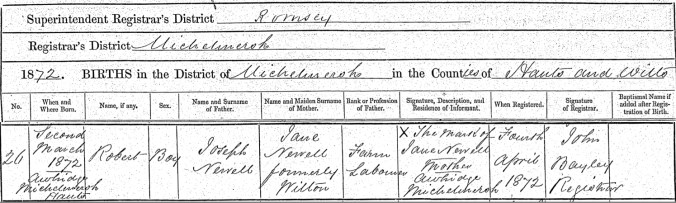 Superintendent Registrar's District Romsey
Registrar's District Michelmersh
1872. BIRTHS in the District of Michelmersh in the Counties of Hants and Wilts
No.
When and Where Born.
Name, if any.
Sex.
Name and Surname of Father.
Name and Maiden Surname of Mother.
Rank or Profession of Father.
Signature, Description, and Residence of Informant.
When Registered.
Signature of Registrar.
Baptismal Name if added after Registration of Birth.
26
Second
March
1872
Awbridge
Michelmersh
Hants
Robert
Boy
Joseph
Newell
Jane
Newell
formerly
Wilton
Farm
Labourer
X The Mark of
Jane Newell
Mother
Awbridge
Michelmersh
Fourth
April
1872
John
Bayley
Registrar